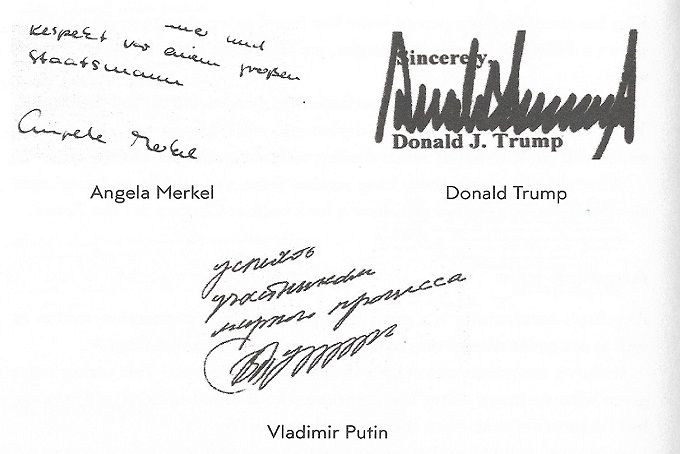 und
Respekt vor einem großen
Staatsmann
Angela Merkel
Angela Merkel
Sincerely,
Donald J. Trump
Donald Trump
успехов
участникам
мирного процесса
Vladimir Putin